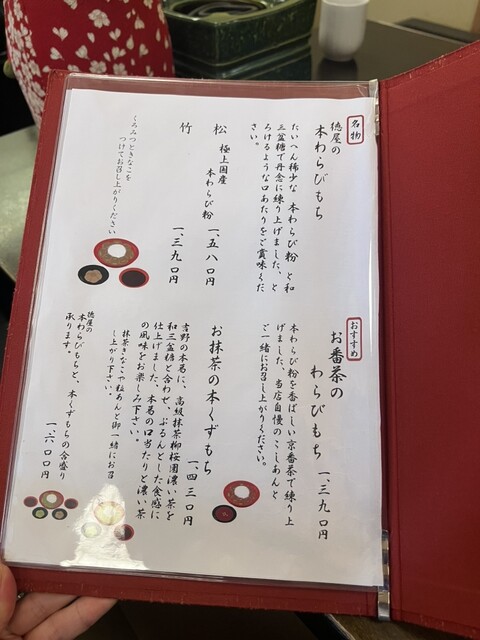 名物
徳屋の
本わらびもち
たいへん稀少な 本わらび粉 と和
三盆糖で丹念に練り上げました、と
ろけるような口あたりをご賞味くだ
さい。
松 極上国産
本わらび粉
一、五八〇円
竹 一、三九〇円
くろみつときなこを
つけてお召し上がりください
おすすめ
お番茶の
わらびもち 一、三九〇円
本わらび粉を香ばしい京番茶で練り上
げました、当店自慢のこしあんと
ご一緒にお召し上がりください。
お抹茶の本くずもち
一、四三〇円
吉野の本葛に、高級抹茶柳桜園濃い茶を
和三盆糖と合わせ、ぷるんとした食感に
仕上げました、本葛の口当たりと濃い茶
の風味をお楽しみ下さい。
抹茶きなこや粒あんと御一緒にお召
し上がり下さい。
徳屋の
本わらびもちと、本くずもちの合盛り
承ります。
一、六〇〇円